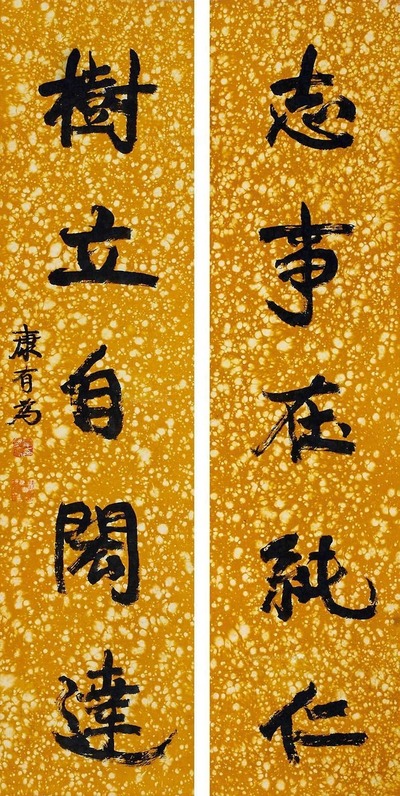 志事在純仁
樹立自閎達
康有為